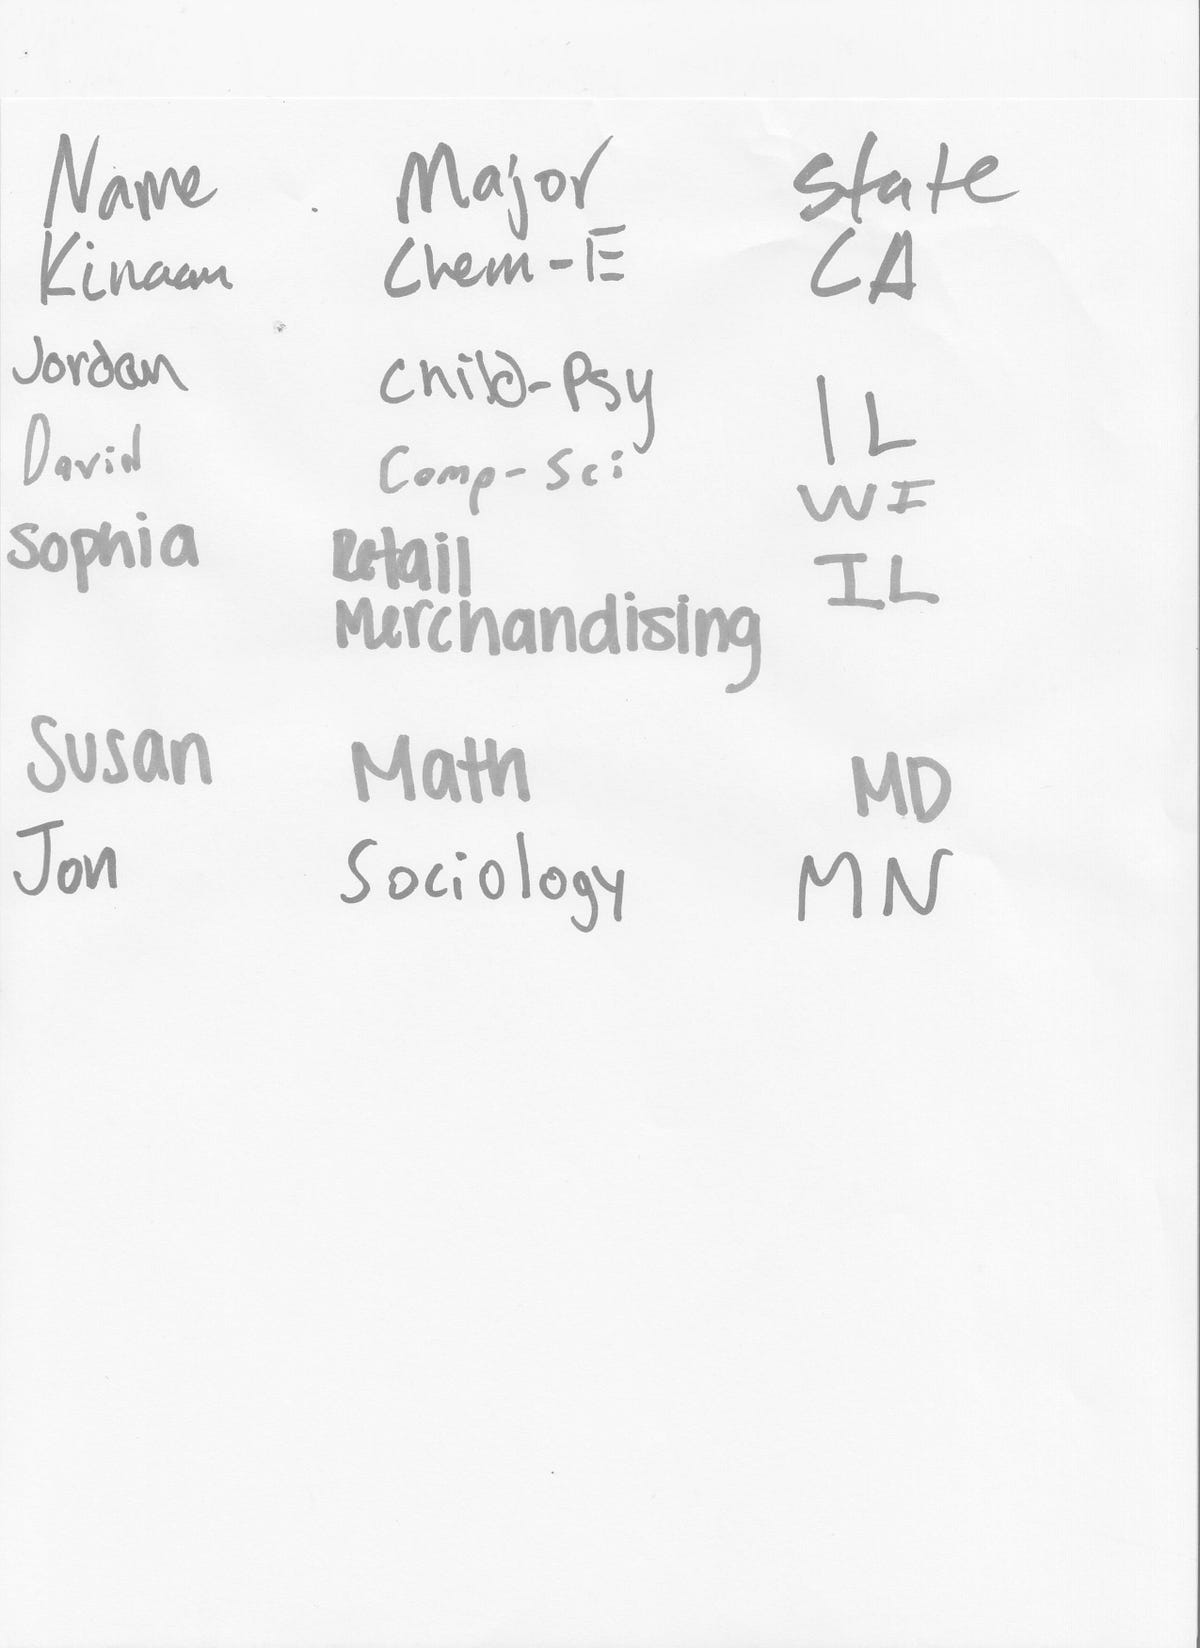 Name Major State
Kinaan Chem-E CA
Jordan Child-Psy IL
David Comp-Sci WI
Sophia Retail IL
Merchandising
Susan Math MD
Jon Sociology MN